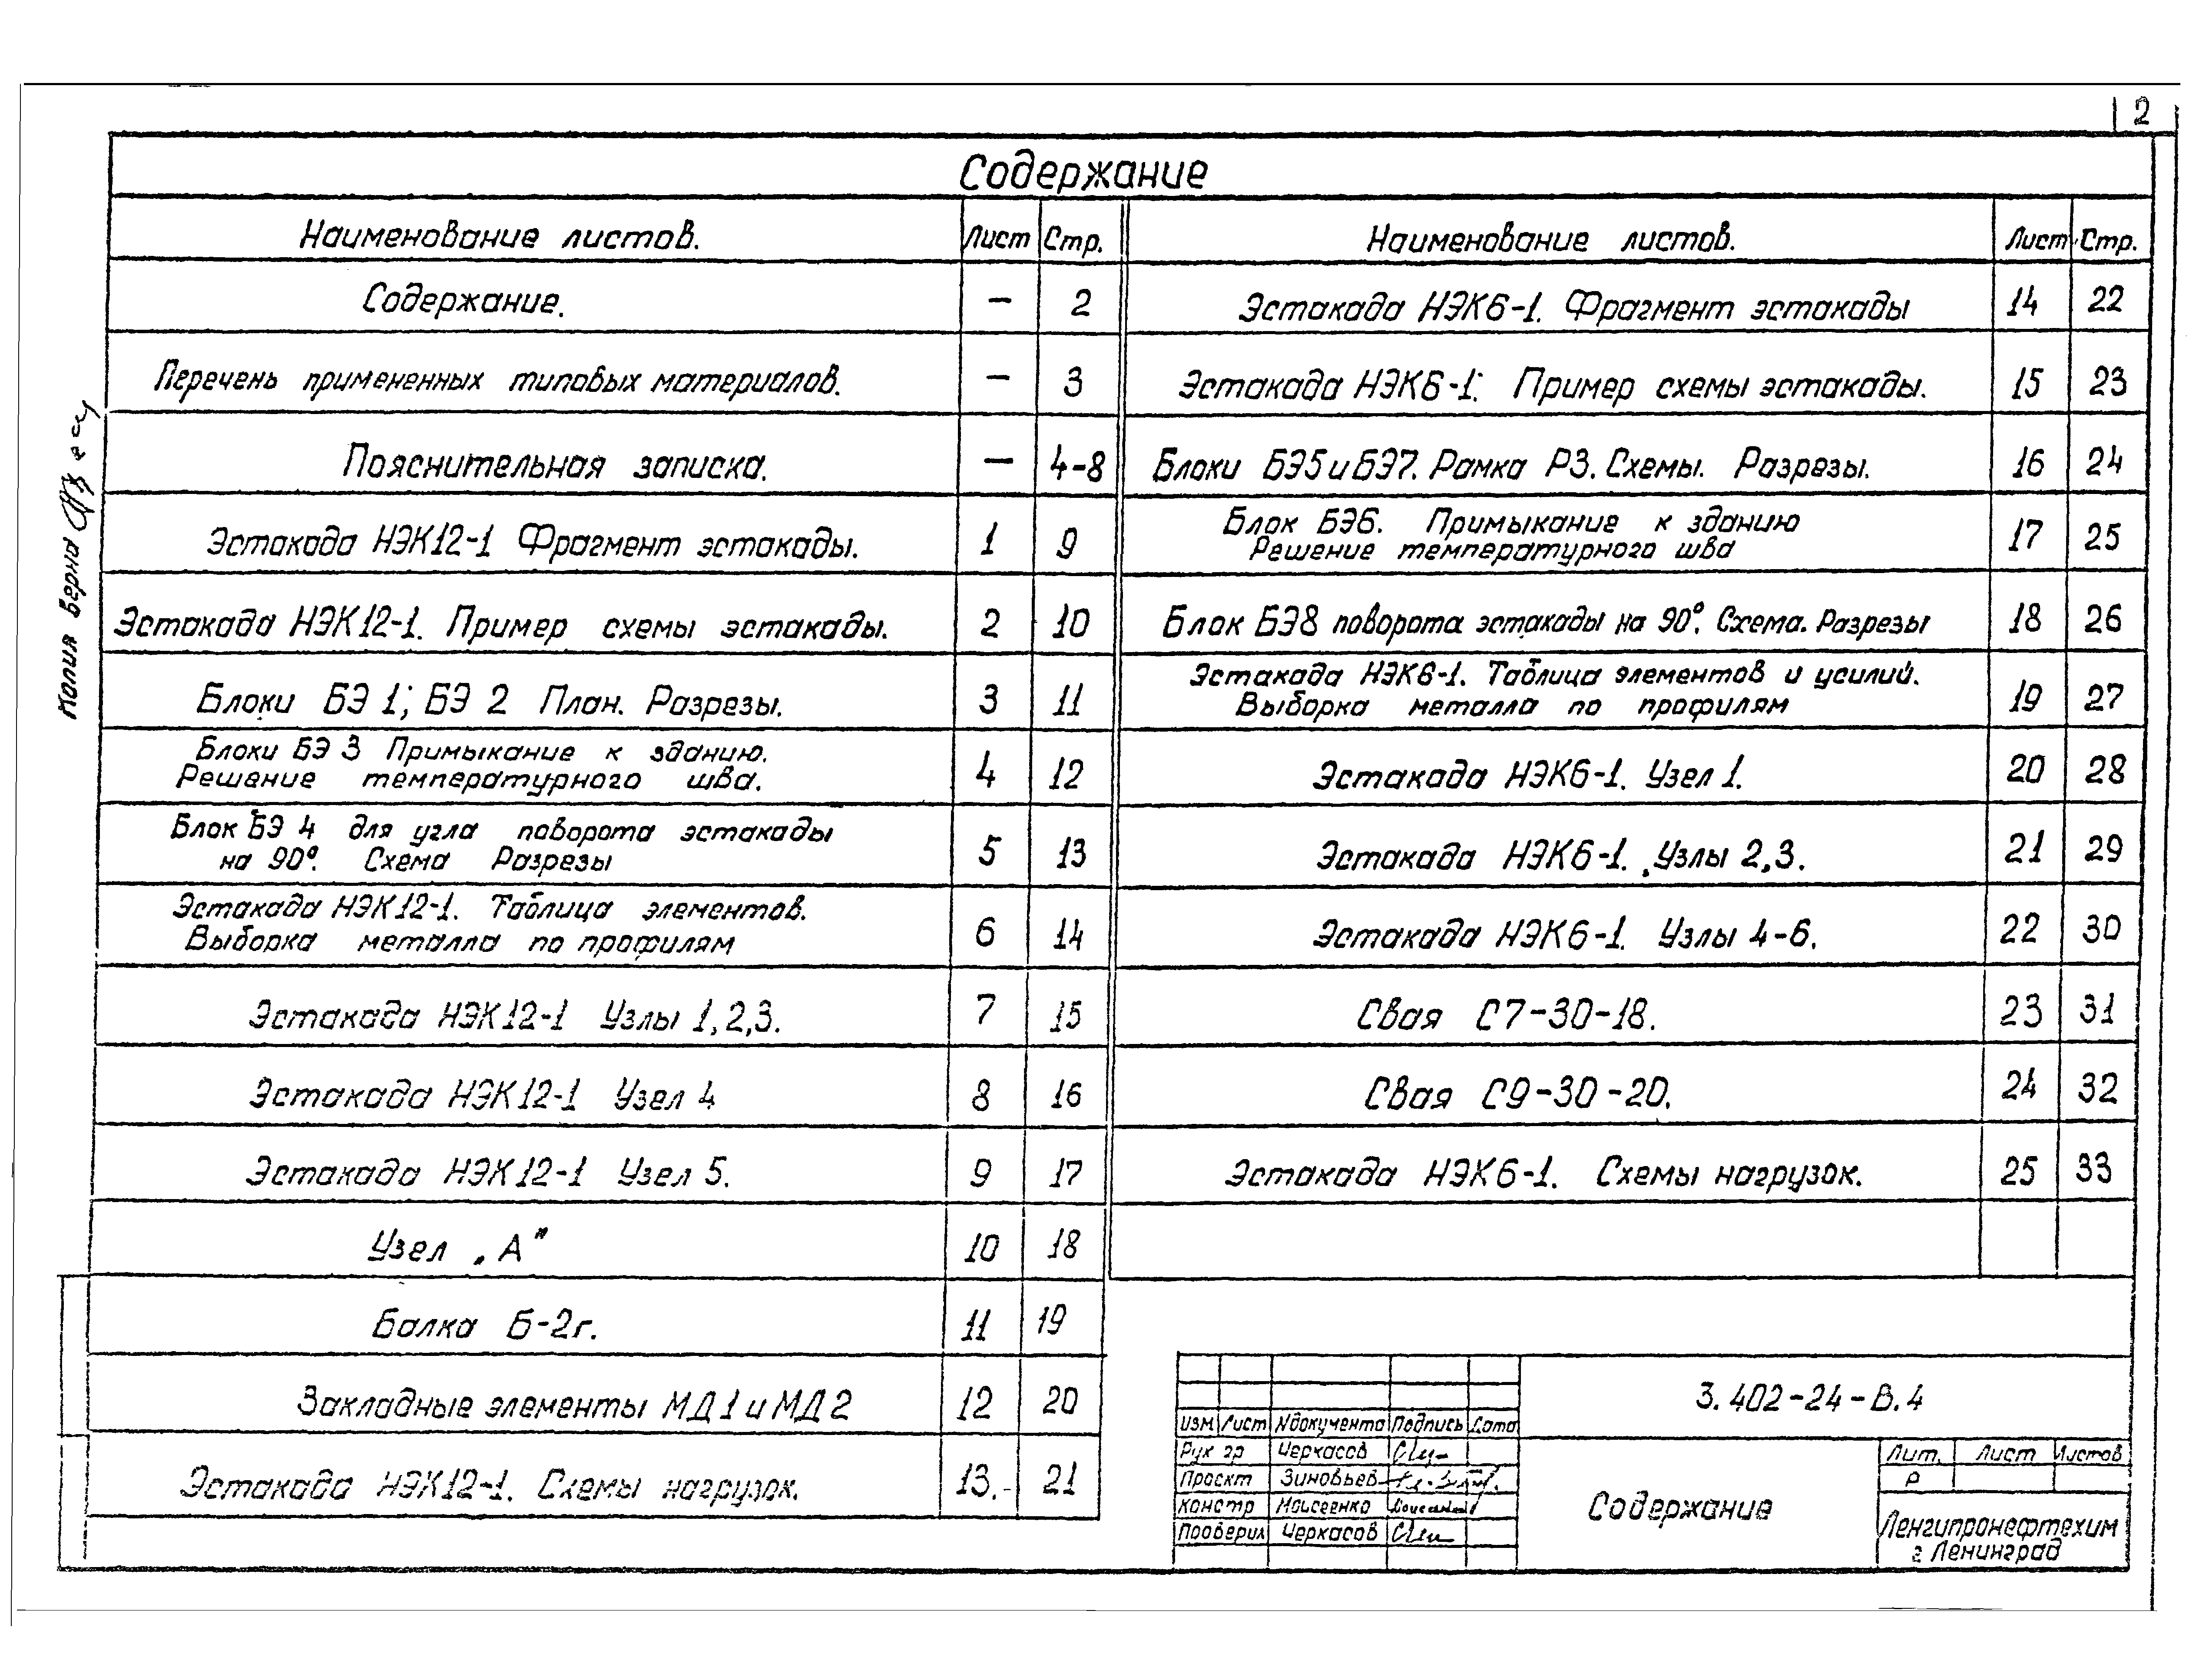 2
Содержание
Наименование листов. Лист Стр.
Содержание. — 2
Перечень примененных типовых материалов. — 3
Пояснительная записка. — 4-8
Эстакада НЭК12-1 Фрагмент эстакады. 1 9
Эстакада НЭК12-1. Пример схемы эстакады. 2 10
Блоки БЭ 1; БЭ 2 План. Разрезы. 3 11
Блоки БЭ 3 Примыкание к зданию.
Решение температурного шва. 4 12
Блок БЭ 4 для угла поворота эстакады
на 90°. Схема Разрезы 5 13
Эстакада НЭК12-1. Таблица элементов.
Выборка металла по профилям 6 14
Эстакада НЭК12-1 Узлы 1,2,3. 7 15
Эстакада НЭК12-1 Узел 4 8 16
Эстакада НЭК12-1 Узел 5. 9 17
Узел „А" 10 18
Балка Б-2г. 11 19
Закладные элементы МД1 и МД2 12 20
Эстакада НЭК12-1. Схемы нагрузок. 13. 21
Наименование листов. Лист Стр.
Эстакада НЭК6-1. Фрагмент эстакады 14 22
Эстакада НЭК6-1. Пример схемы эстакады. 15 23
Блоки БЭ5 и БЭ7. Рамка Р3. Схемы. Разрезы. 16 24
Блок БЭ6. Примыкание к зданию
Решение температурного шва 17 25
Блок БЭ8 поворота эстакады на 90°. Схема. Разрезы 18 26
Эстакада НЭК6-1. Таблица элементов и усилий.
Выборка металла по профилям 19 27
Эстакада НЭК6-1. Узел 1. 20 28
Эстакада НЭК6-1. Узлы 2,3. 21 29
Эстакада НЭК6-1. Узлы 4-6. 22 30
Свая С7-30-18. 23 31
Свая С9-30-20. 24 32
Эстакада НЭК6-1. Схемы нагрузок. 25 33
Копия верна
3.402-24-В.4
Изм Лист № документа Подпись Дата
Рук гр Черкасов
Проект Зиновьев
Констр Моисеенко
Проверил Черкасов
Содержание
Лит. Лист Листов
Р
Ленгипронефтехим
г Ленинград